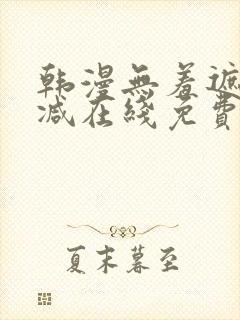 韩漫無羞遮
减在綫免費
夏末暮至